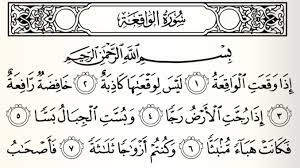 سُورَةُ الْوَاقِعَةِ
بِسْمِ اللَّهِ الرَّحْمَٰنِ الرَّحِيمِ
إِذَا وَقَعَتِ الْوَاقِعَةُ ١ لَيْسَ لِوَقْعَتِهَا كَاذِبَةٌ ٢ خَافِضَةٌ رَّافِعَةٌ
٣ إِذَا رُجَّتِ الْأَرْضُ رَجًّا ٤ وَبُسَّتِ الْجِبَالُ بَسًّا ٥
فَكَانَتْ هَبَاءً مُّنْبَثًّا ٦ وَكُنْتُمْ أَزْوَاجًا ثَلَاثَةً ٧ فَأَصْحَابُ